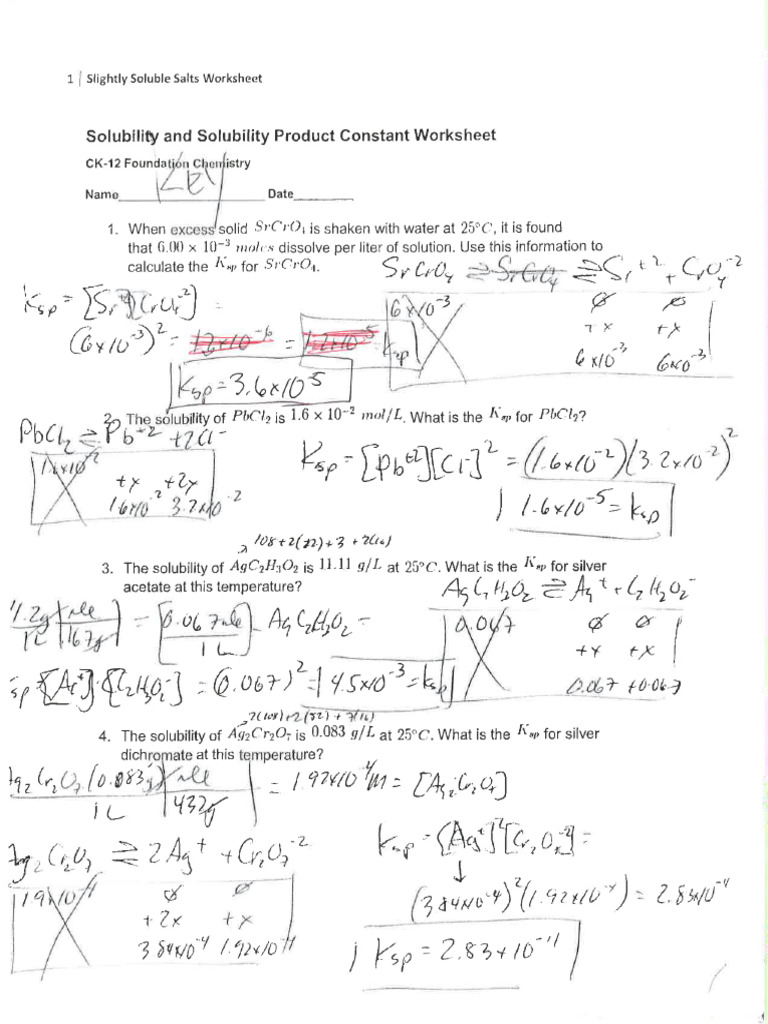 1 | Slightly Soluble Salts Worksheet
Solubility and Solubility Product Constant Worksheet
CK-12 Foundation Chemistry
Key
Name____________________ Date________
1. When excess solid SrCrO₄ is shaken with water at 25°C, it is found
that 6.00 × 10⁻³ moles dissolve per liter of solution. Use this information to
calculate the Ksp for SrCrO₄.
SrCrO₄ ⇌ SrCrO₄ ⇌ Sr⁺² + CrO₄⁻²
Ksp = [Sr⁺²][CrO₄⁻²] =
6×10⁻³ ∅ ∅
+x +x
6×10⁻³ 6×10⁻³
(6×10⁻³)² = = Ksp
Ksp = 3.6×10⁻⁵
2. The solubility of PbCl₂ is 1.6 × 10⁻² mol/L. What is the Ksp for PbCl₂?
PbCl₂ ⇌ Pb⁺² + 2Cl⁻
1.6×10⁻²
+x +2x
1.6×10⁻² 3.2×10⁻²
Ksp = [Pb⁺²][Cl⁻]² = (1.6×10⁻²)(3.2×10⁻²)²
1.6×10⁻⁵ = Ksp
108+2(12)+3+2(16)
3. The solubility of AgC₂H₃O₂ is 11.11 g/L at 25°C. What is the Ksp for silver
acetate at this temperature?
AgC₂H₃O₂ ⇌ Ag⁺ + C₂H₃O₂⁻
1L | 167g = 0.067 mole / 1L AgC₂H₃O₂ =
0.067 ∅ ∅
+x +x
0.067 +0.067
sp = [Ag⁺][C₂H₃O₂⁻] = (0.067)² = 4.5×10⁻³ = Ksp
2(108)+2(52)+7(16)
4. The solubility of Ag₂Cr₂O₇ is 0.083 g/L at 25°C. What is the Ksp for silver
dichromate at this temperature?
Ag₂Cr₂O₇ (0.083g) mole / 1L | 432g = 1.92×10⁻⁴M = [Ag₂Cr₂O₇]
Ag₂Cr₂O₇ ⇌ 2Ag⁺ + Cr₂O₇⁻²
1.9×10⁻⁴ ∅ ∅
+2x +x
3.84×10⁻⁴ 1.92×10⁻⁴
Ksp = [Ag⁺]²[Cr₂O₇⁻²] =
(3.84×10⁻⁴)²(1.92×10⁻⁴) = 2.83×10⁻¹¹
Ksp = 2.83×10⁻¹¹